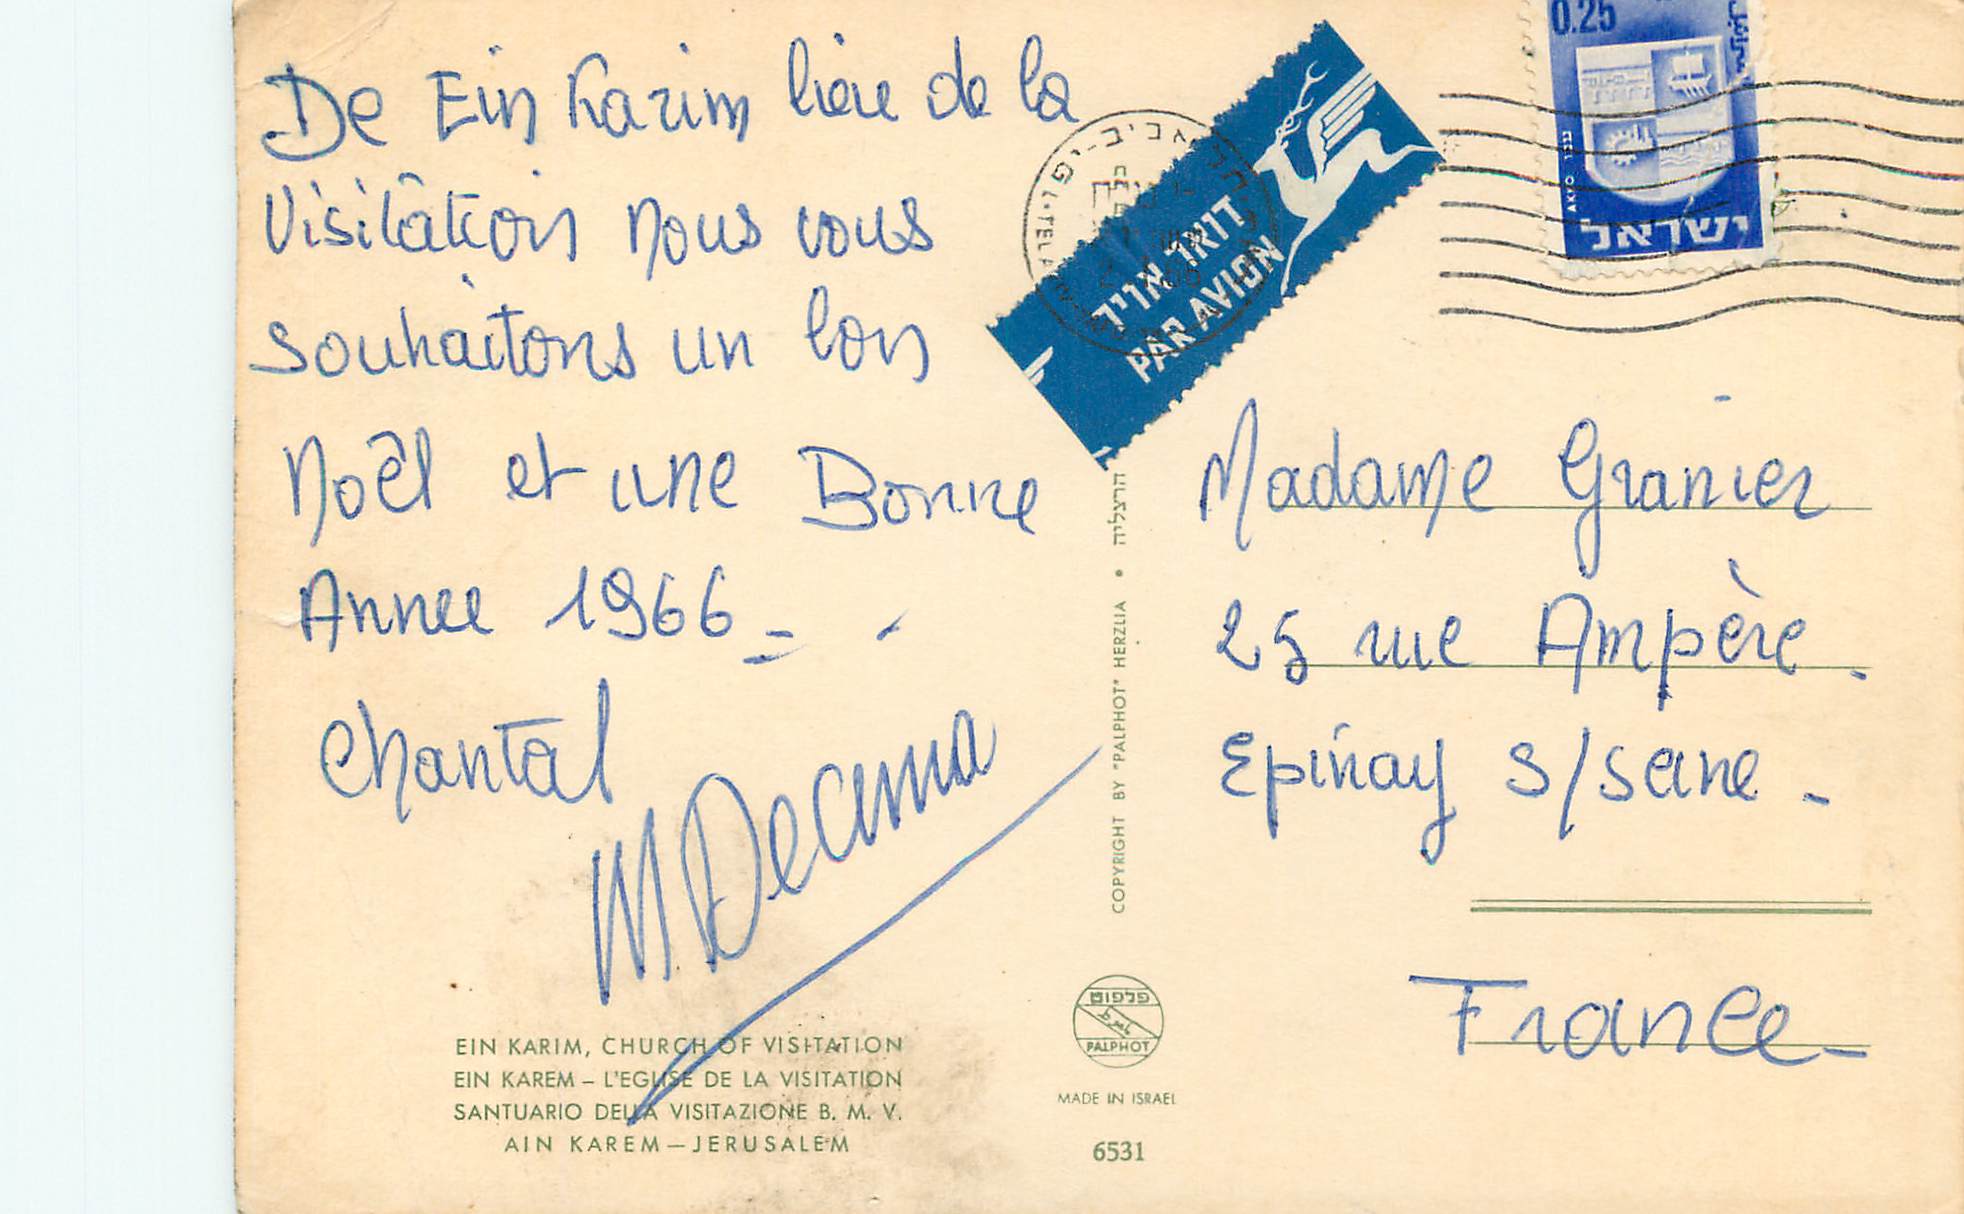 De Ein Karim lieu de la
Visitation nous vous
souhaitons un bon
Noël et une Bonne
Annee 1966
Chantal
EIN KARIM, CHURCH OF VISITATION
EIN KAREM – L'EGLISE DE LA VISITATION
SANTUARIO DELLA VISITAZIONE B. M. V.
AIN KAREM – JERUSALEM
COPYRIGHT BY "PALPHOT" HERZLIA • הרצליה
פלפוט
PALPHOT
MADE IN ISRAEL
6531
דואר אויר
PAR AVION
תל-אביב-יפו
0.25
AKKO
ישראל
Madame Granier
25 rue Ampère.
Epinay s/seine -
France